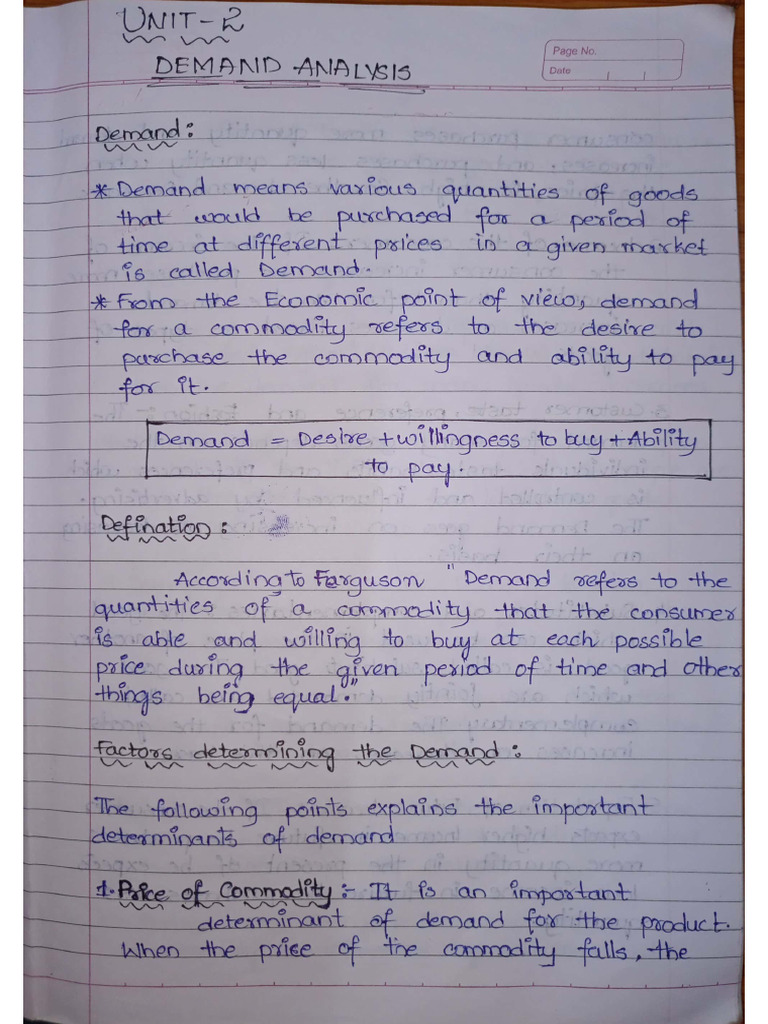 UNIT-2
DEMAND ANALYSIS
Page No.
Date
Demand:
* Demand means various quantities of goods
that would be purchased for a period of
time at different prices in a given market
is called Demand.
* From the Economic point of view, demand
for a commodity refers to the desire to
purchase the commodity and ability to pay
for it.
Demand = Desire + willingness to buy + Ability
to pay.
Defination:
According to Ferguson "Demand refers to the
quantities of a commodity that the consumer
is able and willing to buy at each possible
price during the given period of time and other
things being equal."
Factors determining the Demand:
The following points explains the important
determinants of demand
1. Price of Commodity:- It is an important
determinant of demand for the product.
When the price of the commodity falls, the